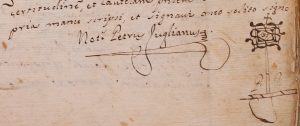 et cautelam
pria manu scripsi, et signavi meo solito signo
Not.s Petrus Juglianus